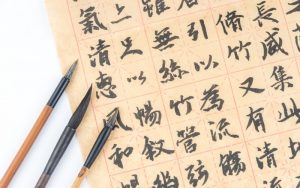 長咸集此
脩竹又有清流
引以為流觴
雖無絲竹管弦
足以暢敘
氣清惠風和